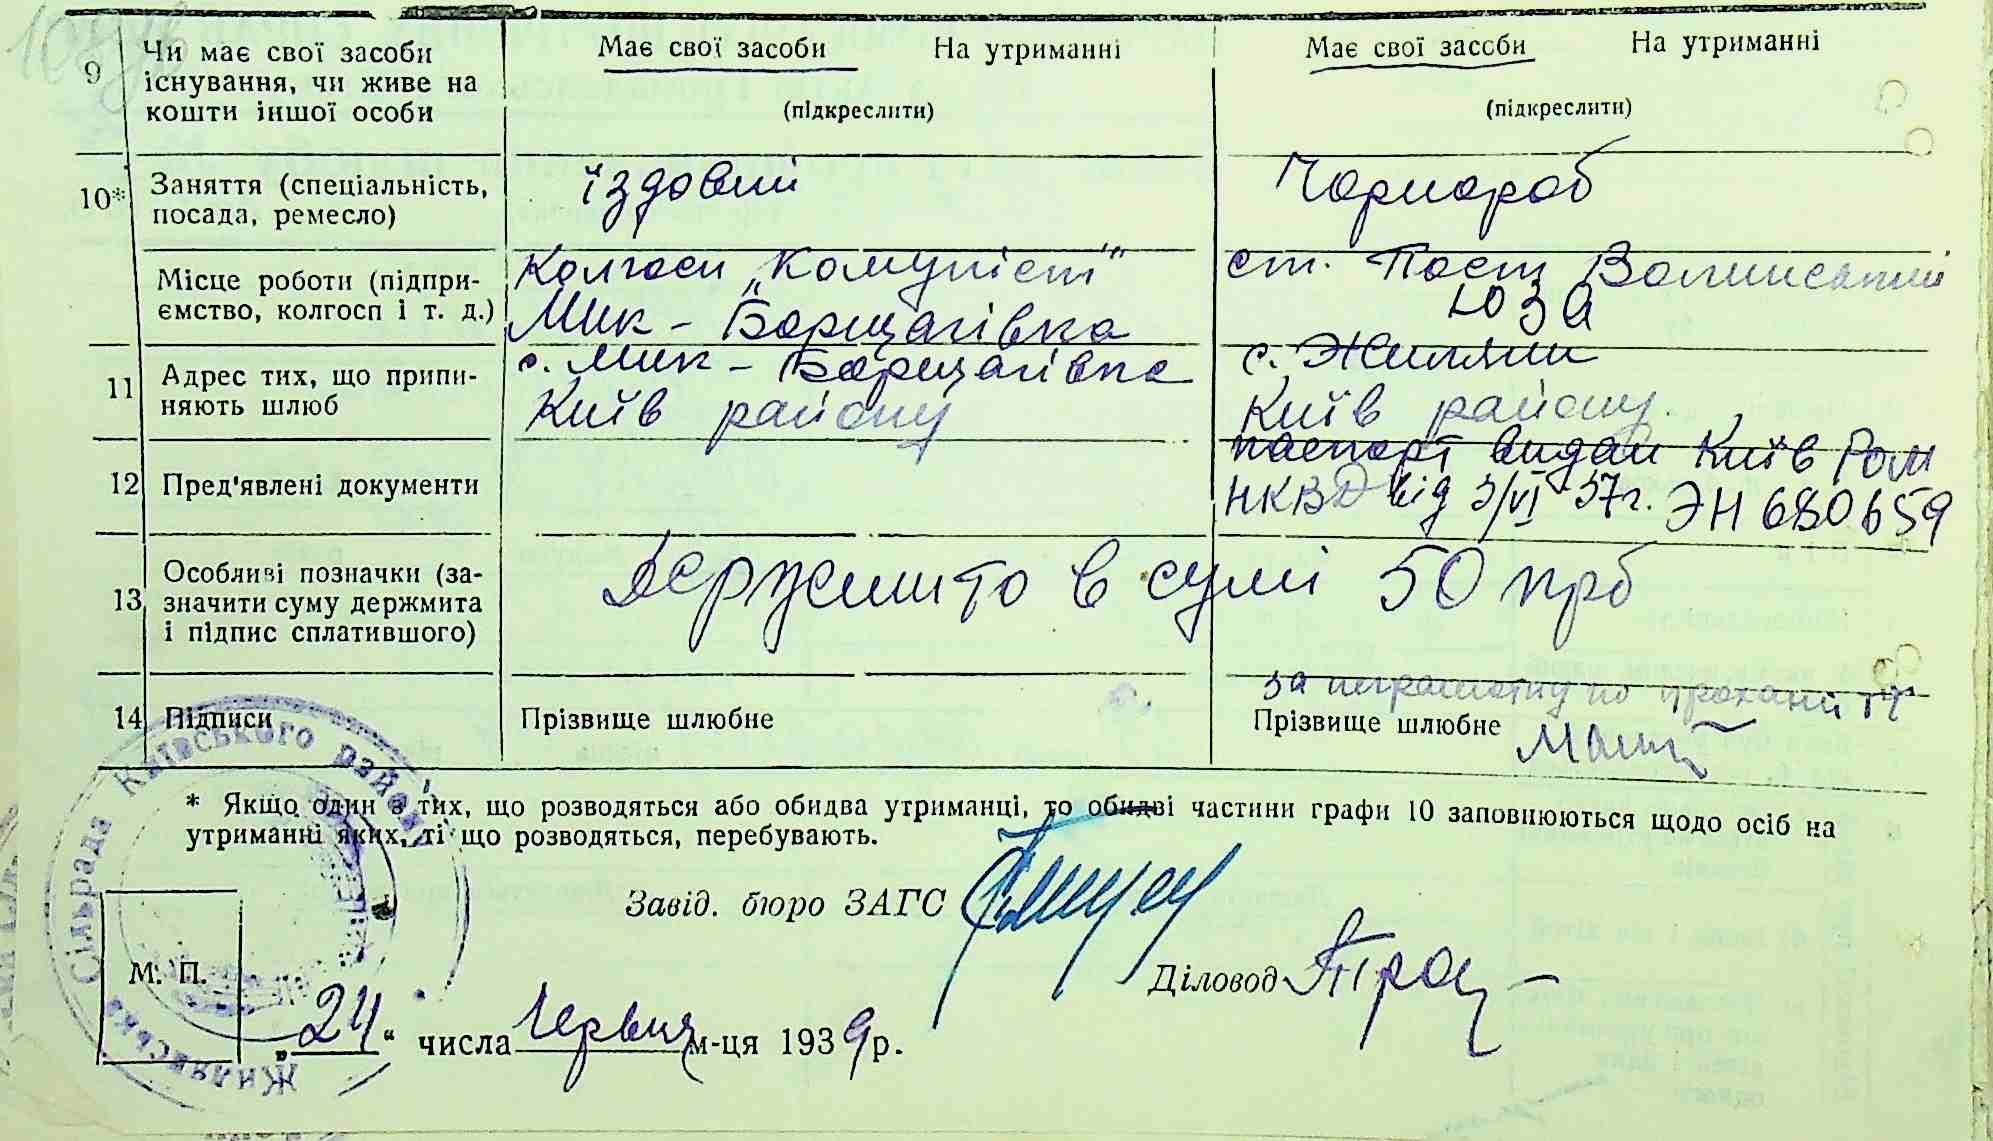 9 Чи має свої засоби існування, чи живе на кошти іншої особи
Має свої засоби На утриманні
(підкреслити)
Має свої засоби На утриманні
(підкреслити)
10* Заняття (спеціальність, посада, ремесло)
їздовий
Чорнороб
Місце роботи (підпри-
ємство, колгосп і т. д.)
Колгосп „Комуніст"
Мик - Борщагівка
ст. Пост Волинський
ЮЗЗ
11 Адрес тих, що припи-
няють шлюб
с. Мик - Борщагівка
Київ району
с. Жиляни
Київ району
12 Пред'явлені документи
паспорт видан Київ Ром
НКВД від 3/VI 37г. ЭН 680659
13 Особливі позначки (за-
значити суму держмита
і підпис сплатившого)
Держмито в сумі 50 крб
14 Підписи
Прізвище шлюбне
за неграмотну по проханні її
Прізвище шлюбне
* Якщо один з тих, що розводяться або обидва утриманці, то обидві частини графи 10 заповнюються щодо осіб на
утриманні яких, ті що розводяться, перебувають.
Завід. бюро ЗАГС
Діловод
М. П.
„24" числа Червня м-ця 1939 р.
Жилянська Сільрада Київського району